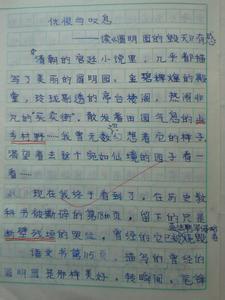 仇恨与叹息
——读《圆明园的毁灭》有感
清朝的宫廷小说里，几乎都描
写了美丽的圆明园，金碧辉煌的殿
堂，玲珑剔透的亭台楼阁，热闹非
凡的“买卖街”，散发着田园气息的山
乡村野……我曾无数 想着它的样子，
渴望着去这个宛如仙境的园子看一
看……
现在我终于看到了，在历史教
科书被撕碎的第 页，留下的只是
断壁残垣的哭泣，曾经的它已被烧毁
语文书第115页，描写的曾经的
圆明园是那样美好，转瞬间，笔锋